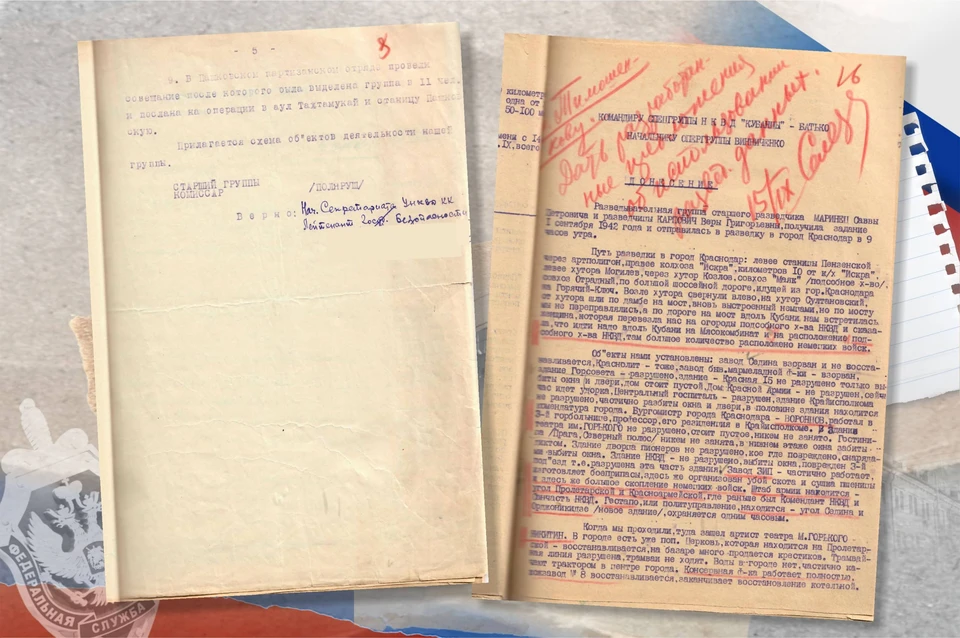 - 5 -
8
9. В партизанском отряде провели
совещание после которого была выделена группа в 11 чел.
и послана на операции в аул Тахтамукай и станицу
скую.
Прилагается схема об"ектов деятельности нашей
группы.
СТАРШИЙ ГРУППЫ
КОМИССАР /ПОЛИРУШ/
Верно: Нач. Секретариата УНКВД КК
Лейтенант Госуд. Безопасности
16
Тимошен-
кову
Дать
ные
15/IX
километр
одна от
50-100 м
КОМАНДИРУ СПЕЦГРУППЫ НКВД "КУБАНЦЫ" - БАТЬКО
НАЧАЛЬНИКУ ОПЕРГРУППЫ ВИННИЧЕНКО
ДОНЕСЕНИЕ
Разведывательная группа старшего разведчика МАРИНЕЦ Саввы
Петровича и разведчицы КАРПОВИЧ Веры Григорьевны, получила задание
1 сентября 1942 года и отправилась в разведку в город Краснодар в 9
часов утра.
Путь разведки в город Краснодар: левее станицы Пензенской
через артполигон, правее колхоза "Искра", километров 10 от к/х "Искра",
левее хутора Могилев, через хутор Козлов, совхоз "Маяк" /подсобное х-во/.
совхоз Отрадный, по большой шоссейной дороге, идущей из гор. Краснодара
на Горячий-Ключ. Возле хутора свернули влево, на хутор Султановский,
от хутора или по дамбе на мост, вновь выстроенный немцами, но по мосту
мы не переправлялись, а по дороге на мост вдоль Кубани нам встретилась
женщина, которая перевезла нас на огороды подсобного х-ва НКВД и сказа-
ла, что идти надо вдоль Кубани на Мясокомбинат и на расположение под-
собного х-ва НКВД, там большое количество расположено немецких войск.
Об"екты нами установлены: завод Седина взорван и не восста-
навливается, Краснолит - тоже, завод бив. мармеладной ф-ки - взорван,
здание Горсовета - разрушено, здание - Красная 15 не разрушено только вы-
биты окна и двери, дом стоит пустой, Дом Красной Армии - не разрушен, сейч
час идет уборка, Центральный госпиталь - разрушен, здание Крайисполкома
не разрушено, частично разбиты окна и двери, в половине здания находится
комендатура города. Бургомистр города Краснодара - ВОРОНКОВ, работал в
3-й горбольнице, профессор, его резиденция в Крайисполкоме. В Здание
театра им. ГОРЬКОГО не разрушено, стоит пустое, никем не занято. Гостини-
ца /Прага, Северный полос/ никем не занята, в нижнем этаже окна забиты
диктом. Здание дворца пионеров не разрушено, кое где повреждено, снаряда-
ми выбиты окна. Здание НКВД - не разрушено, выбиты окна, поврежден 3-й
под"езд т.е. разрушена эта часть здания. Завод ЗИП - частично работает,
изготовляет боеприпасы, здесь же организован убой скота и сушка пшеницы
и здесь же большое скопление немецких войск. Штаб армии находится -
угол Пролетарской и Красноармейской, где раньше был Комендант НКВД и
Санчасть НКВД. Гестапо, или политуправление, находится - угол Седина и
Орджоникидзе /новое здание/, охраняется одним часовым.
Когда мы проходили, туда зашел артист театра М. ГОРЬКОГО
НИКИТИН. В городе есть уже поп. Церковь, которая находится на Пролетар-
ской - восстанавливается, на базаре много продается крестиков. Трамвай-
ная линия разрушена, трамваи не ходят. Воды в городе нет, частично ка-
чают трактором в центре города. Консервная ф-ка работает полностью.
завод № 8 восстанавливается, заканчивает восстановление котельной.
ФЕДЕРАЛЬНАЯ СЛУЖБА